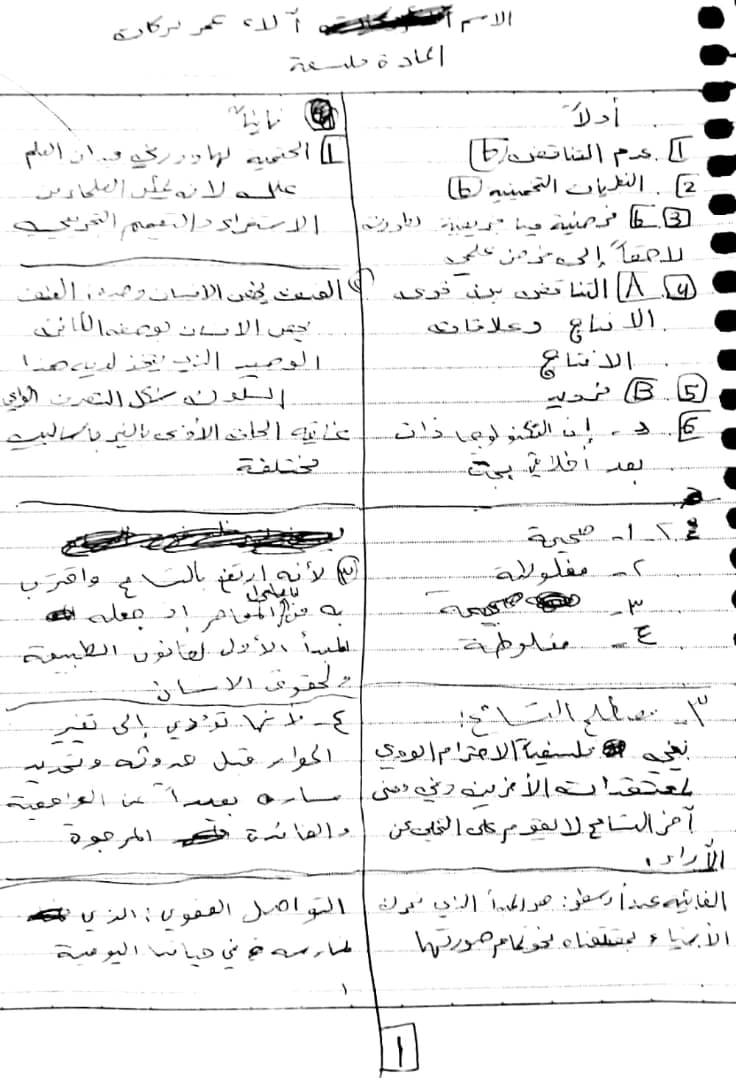 الاسم آلاء عمر بركات
المادة فلسفة
أولاً
1 . عدم التناقض (b)
2 . النظريات التخمينية (b)
3 b فرضية ميتافيزيقية تطورت
لاحقاً إلى فرض علمي
4 A التناقض بين قوى
الانتاج وعلاقات
الانتاج
5 B فرويد
6 د. إن التكنولوجيا ذات
بعد أخلاقي بحت
٢ - ١ - صحيحة
٢ - مغلوطة
٣ - صحيحة
٤ - مغلوطة
٣ - مصطلح التسامح:
يعني فلسفياً الاحترام الودي
لمعتقدات الآخرين وفي معنى
آخر التسامح لا يقوم على التخلي عن
الآراء.
الغائية عند أرسطو: هو المبدأ الذي تتحرك
الأشياء بمقتضاه نحو تمام صورتها
ثانياً
1 الحتمية لها دور في ميدان العلم
علله لأنه يمكن العلماء من
الاستقراء والتعميم التجريبي
٢ العنف يخص الانسان وحده: العنف
يخص الانسان بوصفه الكائن
الوحيد الذي يتخذ لديه هذا
السلوك شكل التصرف الواعي
غايته إلحاق الأذى بالغير بأساليب
مختلفة
٣ لأنه ارتفع بالتسامح واقترب
به من المعنى المعاصر اذ جعله
المبدأ الأول لقانون الطبيعة
ولحقوق الانسان
٤ - لأنها تؤدي إلى تغيير
الحوار قبل حدوثه وتحديد
مساره بعيداً عن الواقعية
والفائدة المرجوة
التواصل العفوي: الذي
نمارسه في حياتنا اليومية
١
1